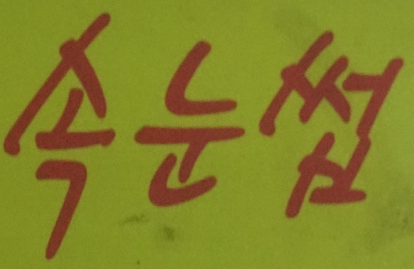 속눈썹